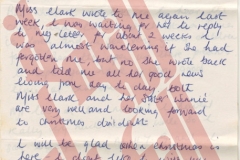 Miss Clark wrote to me again last
week, I now waiting for her to reply
to my letter, about 2 weeks I
was almost wondering if she had
forgotten me, but no she wrote back
and told me all her good news
living from day to day both
Miss Clark and her sister Winnie
are very well and looking forward
to Christmas
I will be glad when Christmas is
here